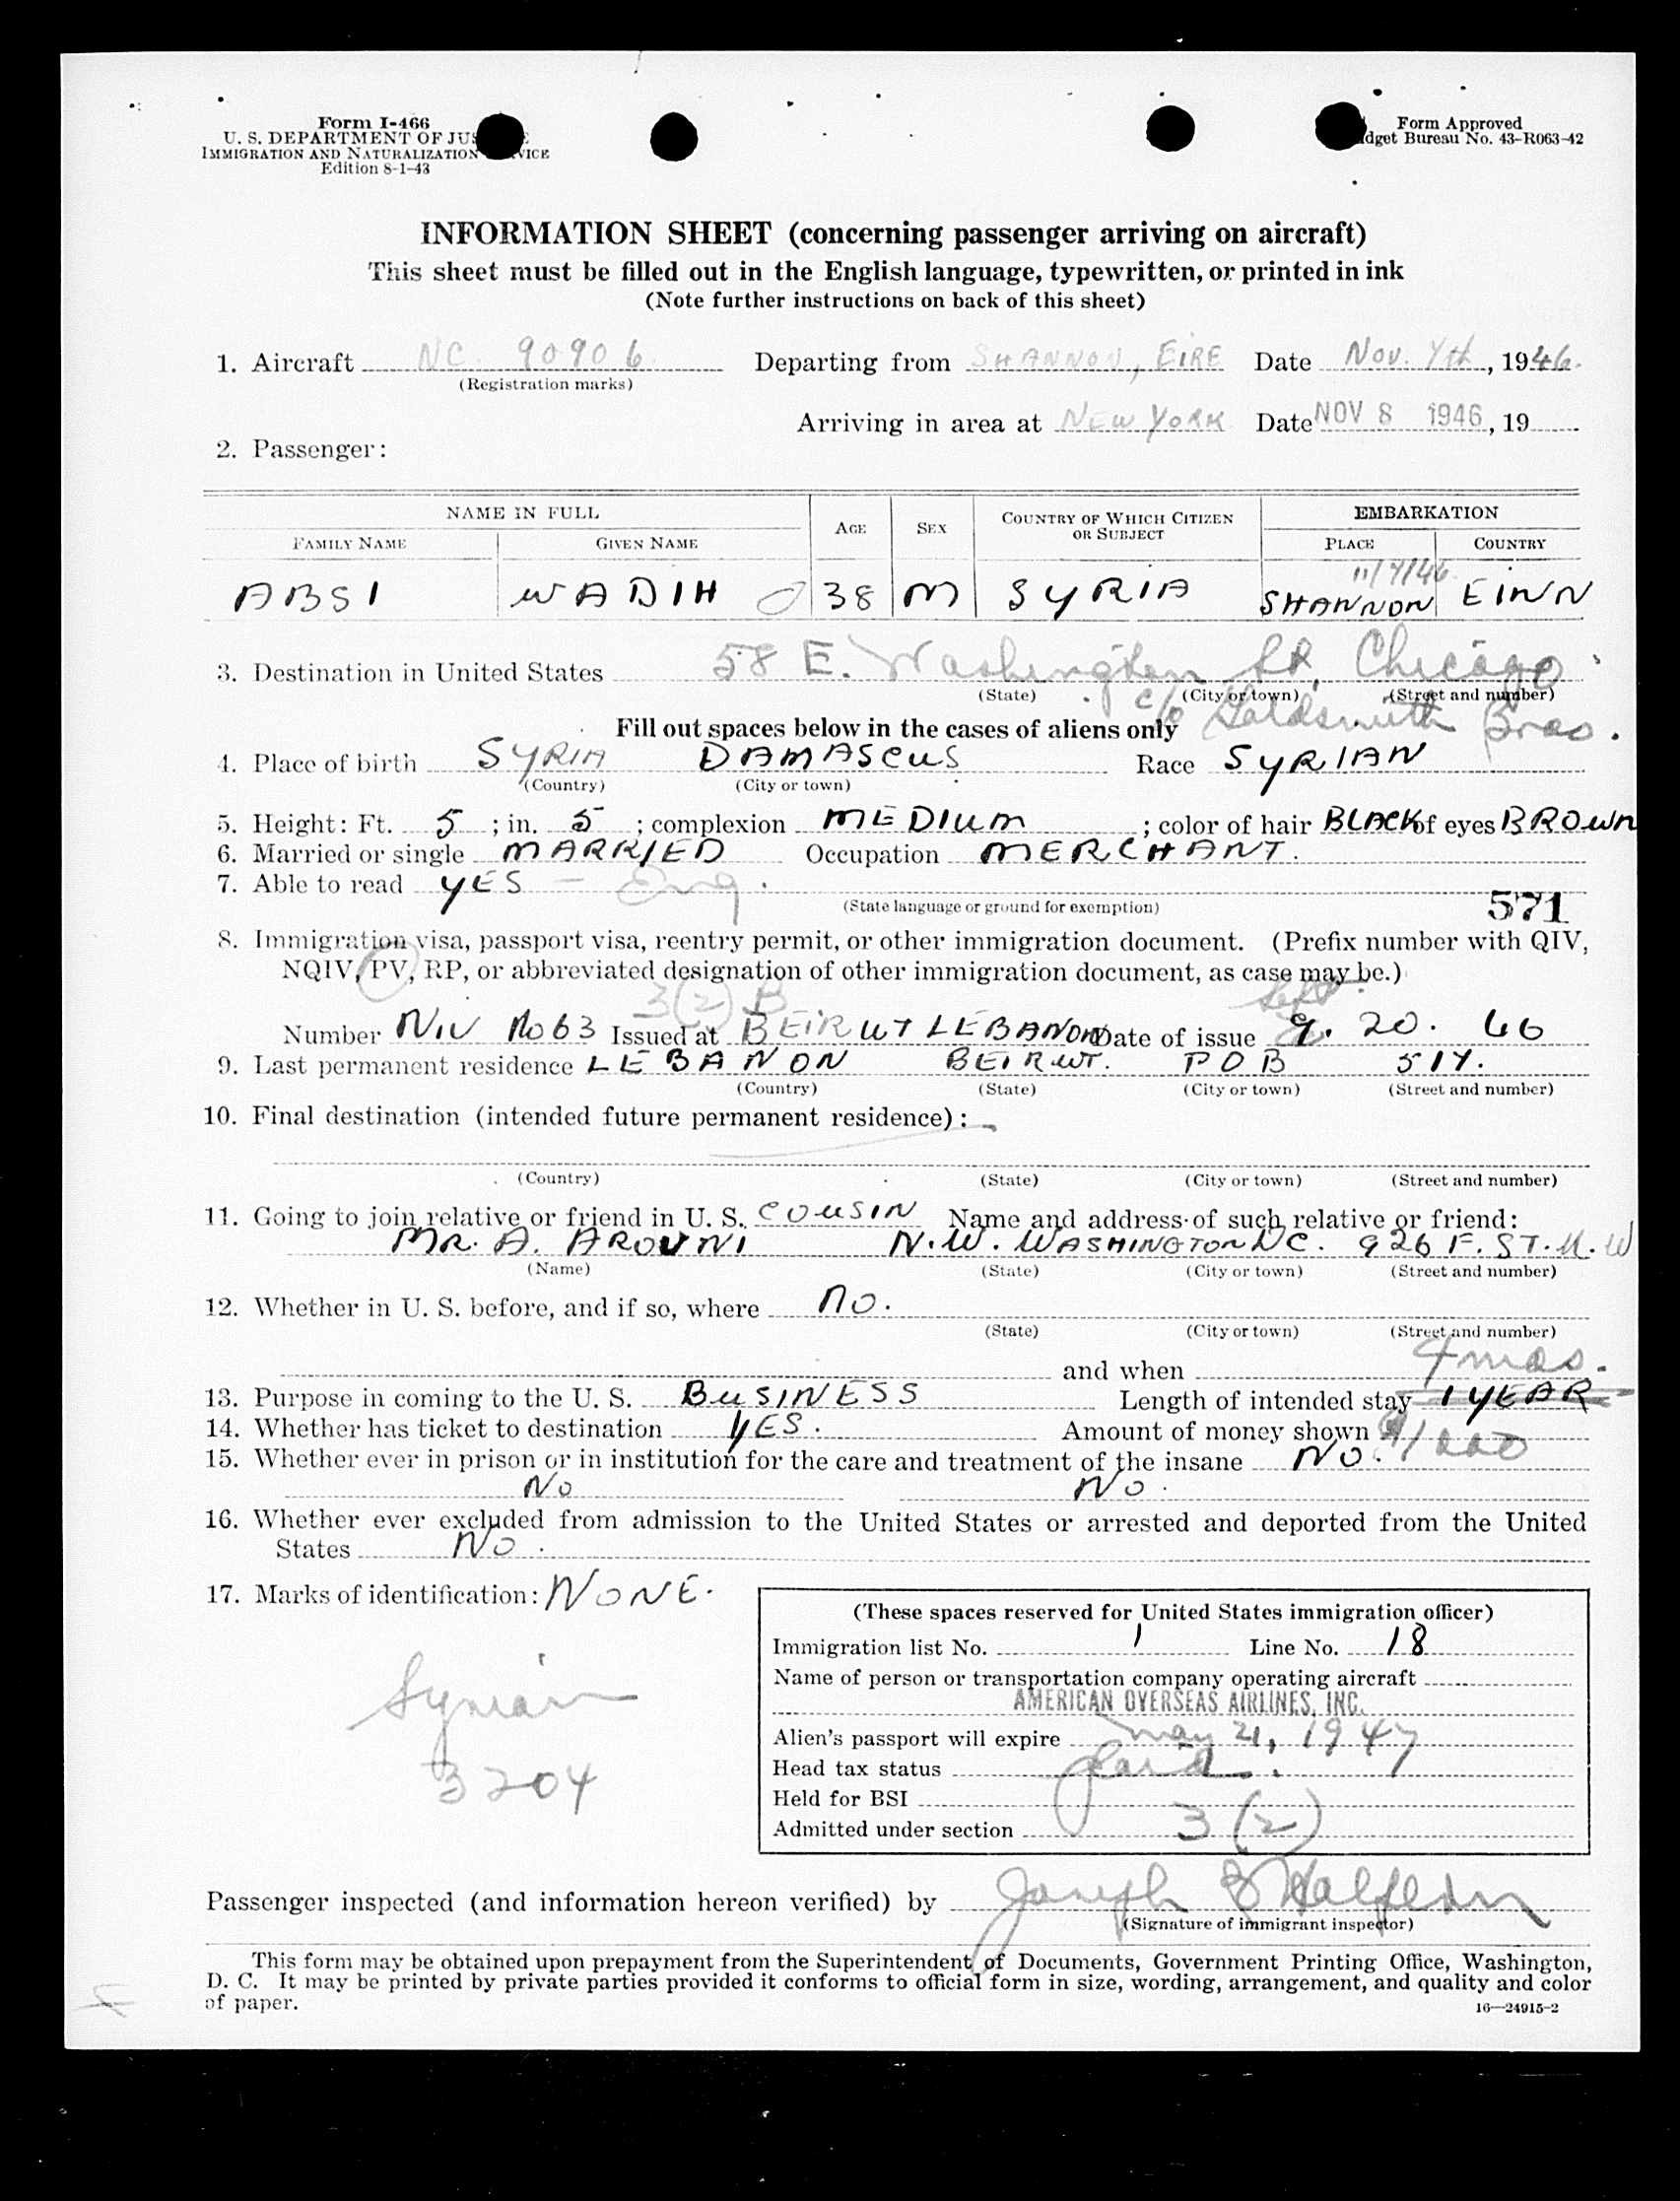 Form I-466
U. S. DEPARTMENT OF JUS
IMMIGRATION AND NATURALIZATION VICE
Edition 8-1-43
Form Approved
dget Bureau No. 43-R063-42
INFORMATION SHEET (concerning passenger arriving on aircraft)
This sheet must be filled out in the English language, typewritten, or printed in ink
(Note further instructions on back of this sheet)
1. Aircraft NC 90906 Departing from SHANNON, EIRE Date Nov. 7th, 1946.
(Registration marks)
Arriving in area at NEW YORK Date NOV 8 1946, 19
2. Passenger:
NAME IN FULL AGE SEX COUNTRY OF WHICH CITIZEN OR SUBJECT EMBARKATION
FAMILY NAME GIVEN NAME PLACE COUNTRY
11/7/46
ABSI WADIH 38 M SYRIA SHANNON EINN
3. Destination in United States 58 E. Washington St, Chicago
(State) (City or town) (Street and number)
c/o Goldsmith Bros.
Fill out spaces below in the cases of aliens only
4. Place of birth SYRIA DAMASCUS Race SYRIAN
(Country) (City or town)
5. Height: Ft. 5 ; in. 5 ; complexion MEDIUM ; color of hair BLACK of eyes BROWN
6. Married or single MARRIED Occupation MERCHANT.
7. Able to read YES - Eng.
(State language or ground for exemption)
571
8. Immigration visa, passport visa, reentry permit, or other immigration document. (Prefix number with QIV,
NQIV, PV, RP, or abbreviated designation of other immigration document, as case may be.)
3(2) B Sept
Number NIV No 63 Issued at BEIRUT LEBANON Date of issue 9. 20. 46
9. Last permanent residence LEBANON BEIRUT. POB 517.
(Country) (State) (City or town) (Street and number)
10. Final destination (intended future permanent residence):
(Country) (State) (City or town) (Street and number)
11. Going to join relative or friend in U. S. COUSIN Name and address of such relative or friend:
MR. A. AROUNI N.W. WASHINGTON DC. 926 F. ST. N.W
(Name) (State) (City or town) (Street and number)
12. Whether in U. S. before, and if so, where NO.
(State) (City or town) (Street and number)
and when
4 mos.
13. Purpose in coming to the U. S. BUSINESS Length of intended stay 1 YEAR
14. Whether has ticket to destination YES. Amount of money shown $1000
15. Whether ever in prison or in institution for the care and treatment of the insane NO.
NO NO.
16. Whether ever excluded from admission to the United States or arrested and deported from the United
States NO.
17. Marks of identification: NONE.
Syrian
3204
(These spaces reserved for United States immigration officer)
Immigration list No. 1 Line No. 18
Name of person or transportation company operating aircraft
AMERICAN OVERSEAS AIRLINES, INC.
Alien's passport will expire May 21, 1947
Head tax status Paid.
Held for BSI
Admitted under section 3(2)
Passenger inspected (and information hereon verified) by Joseph Halpern
(Signature of immigrant inspector)
This form may be obtained upon prepayment from the Superintendent of Documents, Government Printing Office, Washington,
D. C. It may be printed by private parties provided it conforms to official form in size, wording, arrangement, and quality and color
of paper.
16—24915-2